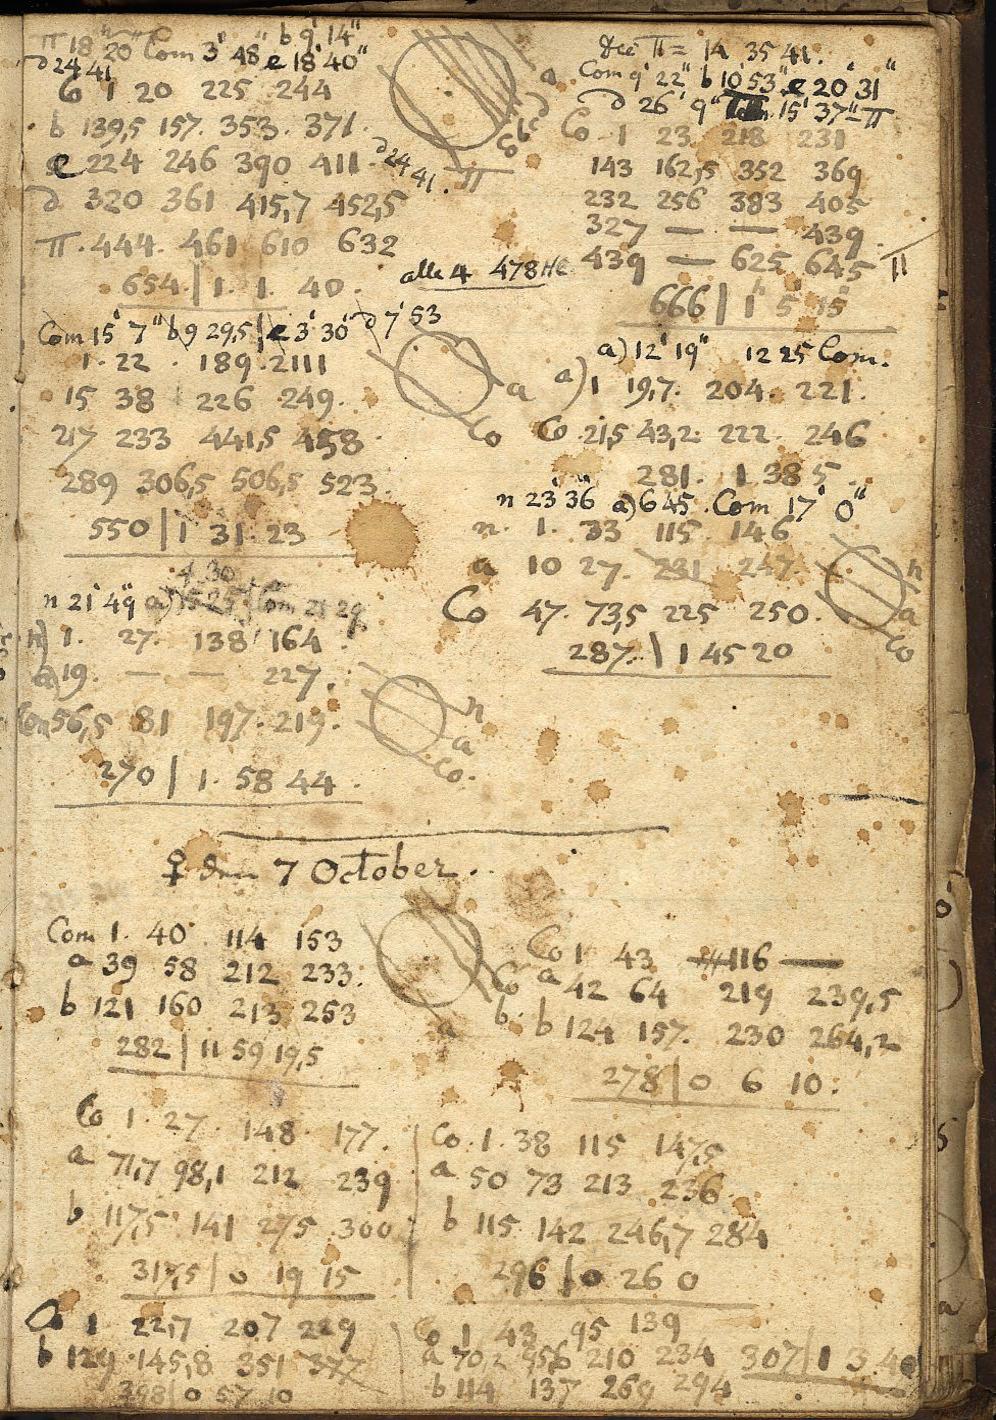 π 18' 20" Com 3' 48" b 9' 14" e 18' 40"
d 24 41
Co 1 20 225 244
b 139,5 157. 353. 371.
e 224 246 390 411
d 24 41.
d 320 361 415,7 452,5
π. 444. 461 610 632
654 | 1. 1. 40.
a
b
Co
π
π = 14 35 41.
Com 9' 22" b 10' 53" e 20' 31"
d 26' 9" 15' 37" π
Co 1 23 218 231
143 162,5 352 369
232 256 383 405
327 — — 439
439 — 625 645 π
666 | 1 5 15
alle 4 478 He
Com 15' 7" b 9 29,5 | e 3' 30" d 7' 53
1. 22. 189. 2111
15 38 226 249.
217 233 441,5 458
289 306,5 506,5 523.
550 | 1 31. 23
a
Co
a) 12' 19" 12 25 Com.
a) 1 19,7. 204. 221.
Co 21,5 43,2 222 246
281. 1 38 5.
n 23' 36" a) 6 45. Com 17' 0"
n. 1. 33 115. 146
a 10 27. 231 247
Co 47. 73,5 225 250.
287. \ 1 45 20
n
a
Co
4 30
n 21' 49" a) 15 25 Com 21 29
n) 1. 27. 138 164
a) 19. — — 227.
Com 56,5 81 197. 219.
270 | 1. 58 44.
n
a
Co.
♀ den 7 October..
Com 1. 40 114 153
a 39 58 212 233.
b 121 160 213 253
282 | 11 59 19,5
Co
b.
a
Co 1 43 116 —
a 42 64 219 239,5
b 124 157. 230 264,2
278 | 0 6 10.
Co 1. 27. 148. 177.
a 71,7 98,1 212 239
b 117,5 141 275 300
317,5 | 0 19 15
Co. 1. 38 115 147,5
a 50 73 213 236
b 115. 142 246,7 284
296 | 0 26 0
Co 1 22,7 207 229
b 129 145,8 351 377
398 | 0 57 10
Co 1 43 95 139
a 70,2 95,6 210 234
b 114 137 269 294
307 | 1 3 40